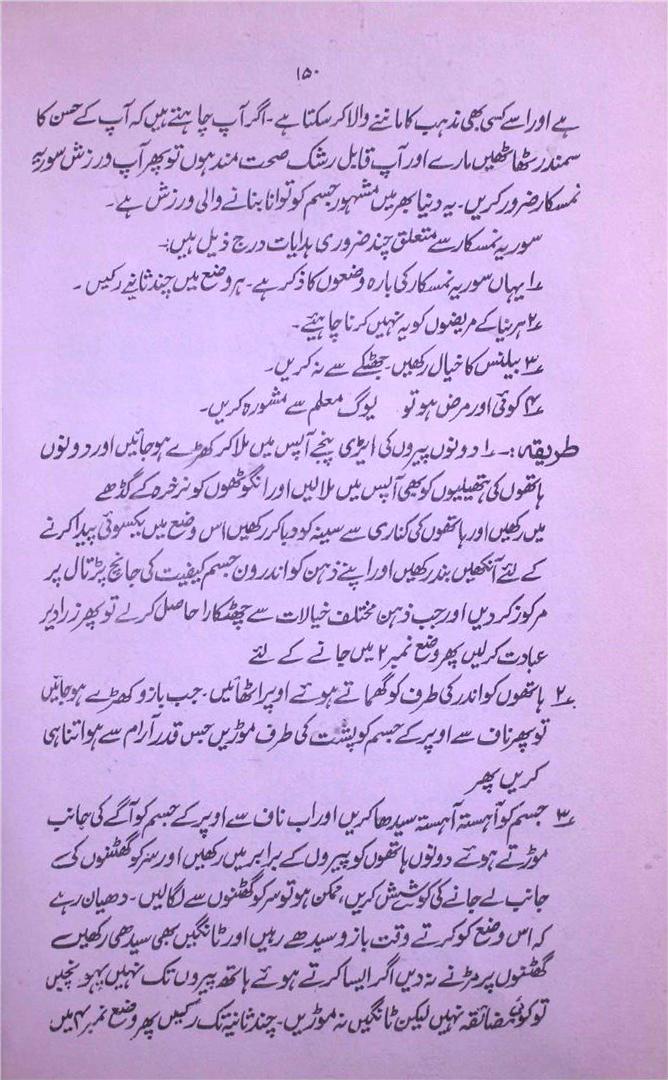 ۱۵۰
ہے اور اسے کسی بھی مذہب کا ماننے والا کر سکتا ہے۔ اگر آپ چاہتے ہیں کہ آپ کے حسن کا
سمندر ٹھاٹھیں مارے اور آپ قابل رشک صحت مند ہوں تو پھر آپ ورزش سوریہ
نمسکار ضرور کریں۔ یہ دنیا بھر میں مشہور جسم کو توانا بنانے والی ورزش ہے۔
سوریہ نمسکار سے متعلق چند ضروری ہدایات درج ذیل ہیں:۔
۱؎ یہاں سوریہ نمسکار کی بارہ وضعوں کا ذکر ہے۔ ہر وضع میں چند ثانیۓ رکیں۔
۲؎ ہرنیا کے مریضوں کو یہ نہیں کرنا چاہیئے۔
۳؎ بیلنس کا خیال رکھیں۔ جھٹکے سے نہ کریں۔
۴؎ کوئی اور مرض ہو تو یوگ معلم سے مشورہ کریں۔
طریقہ:۔ ۱؎ دونوں پیروں کی ایڑی پنجے آپس میں ملا کر کھڑے ہو جائیں اور دونوں
ہاتھوں کی ہتھیلیوں کو بھی آپس میں ملا لیں اور انگوٹھوں کو نرخرہ کے گڈھے
میں رکھیں اور ہاتھوں کی کناری سے سینہ کو دبا کر رکھیں اس وضع میں یکسوئی پیدا کرنے
کے لئے آنکھیں بند رکھیں اور اپنے ذہن کو اندرون جسم کیفیت کی جانچ پڑتال پر
مرکوز کر دیں اور جب ذہن مختلف خیالات سے چھٹکارا حاصل کر لے تو پھر ذرا دیر
عبادت کر لیں پھر وضع نمبر ۲ میں جانے کے لئے
۲؎ ہاتھوں کو اندر کی طرف کو گھماتے ہوئے اوپر اٹھائیں۔ جب بازو کھڑے ہو جائیں
تو پھر ناف سے اوپر کے جسم کو پشت کی طرف موڑیں جس قدر آرام سے ہو اتنا ہی
کریں پھر
۳؎ جسم کو آہستہ آہستہ سیدھا کریں اور اب ناف سے اوپر کے جسم کو آگے کی جانب
موڑتے ہوئے دونوں ہاتھوں کو پیروں کے برابر میں رکھیں اور سر کو گھٹنوں کی
جانب لے جانے کی کوشش کریں، ممکن ہو تو سر کو گھٹنوں سے لگا لیں۔ دھیان رہے
کہ اس وضع کو کرتے وقت بازو سیدھے رہیں اور ٹانگیں بھی سیدھی رکھیں سے
گھٹنوں پر مڑنے نہ دیں اگر ایسا کرتے ہوئے ہاتھ پیروں تک نہیں پہونچیں
تو کوئی مضائقہ نہیں لیکن ٹانگیں نہ موڑیں۔ چند ثانیۃ تک رکیں پھر وضع نمبر ۴ میں